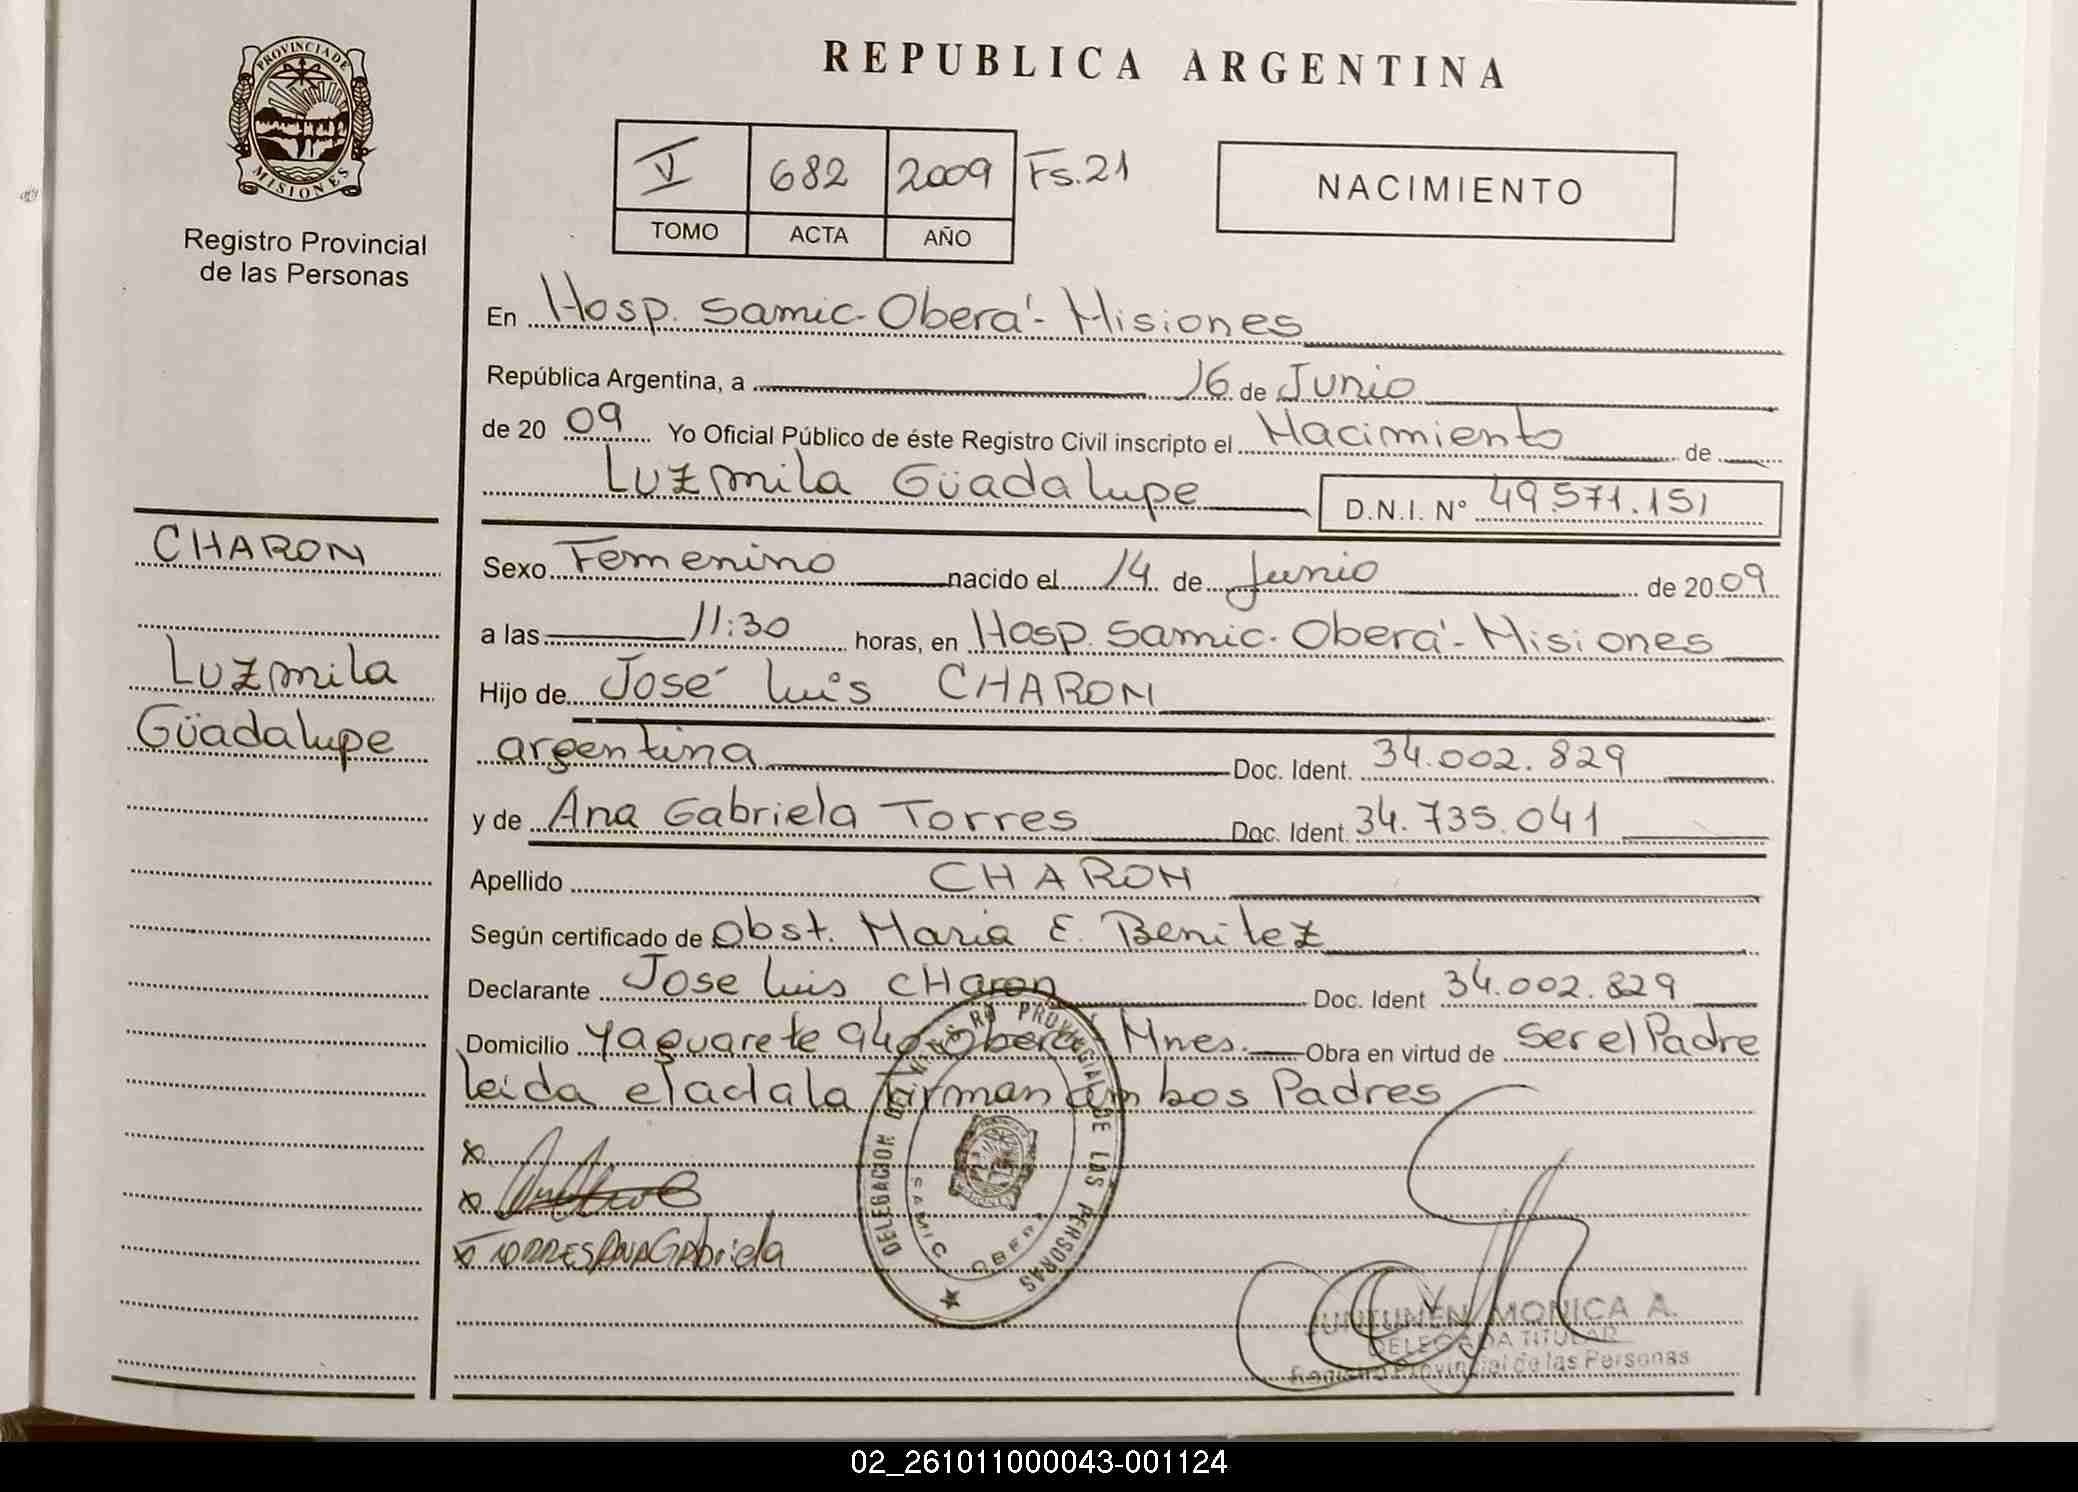 PROVINCIA DE
MISIONES
Registro Provincial
de las Personas
REPUBLICA ARGENTINA
V 682 2009 Fs.21
TOMO ACTA AÑO
NACIMIENTO
En Hosp. Samic - Oberá - Misiones
República Argentina, a 16 de Junio
de 20 09 Yo Oficial Público de éste Registro Civil inscripto el Nacimiento de
Luzmila Güadalupe D.N.I. Nº 49.571.151
CHARON
Luzmila
Güadalupe
Sexo Femenino nacido el 14 de Junio de 20 09
a las 11:30 horas, en Hosp. Samic - Oberá - Misiones
Hijo de José Luis CHARON
argentina Doc. Ident. 34.002.829
y de Ana Gabriela Torres Doc. Ident. 34.735.041
Apellido CHARON
Según certificado de Obst. Maria E. Benitez
Declarante Jose Luis CHaron Doc. Ident 34.002.829
Domicilio Yaguarete 940 - Oberá Mnes. Obra en virtud de ser el Padre
leida el acta la firman ambos Padres
TORRES ANA GAbriela
DELEGACION REGISTRO PROVINCIAL DE LAS PERSONAS
SAMIC OBERA
JUNTUNEN MONICA A.
DELEGADA TITULAR
Registro Provincial de las Personas
02_261011000043-001124